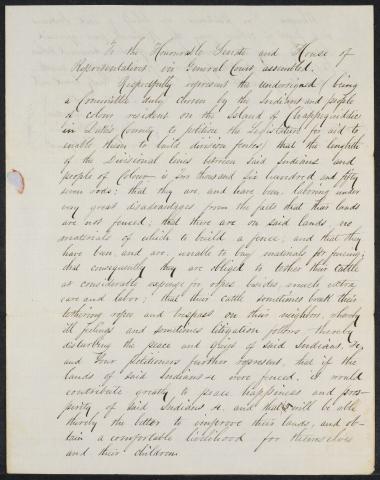 To the Honorable Senate and House of
Representatives in General Court assembled.
Respectfully represent the undersigned (being
a Committee duly chosen by the Indians and people
of colour resident on the Island of Chappequiddic
in Dukes County to petition the Legislature for aid to
enable them to build division fences) that the length
of the Divisional lines between said Indians and
people of Colour is Two thousand six hundred and fifty
seven rods; that they are, and have been, laboring under
very great disadvantages from the facts that their lands
are not fenced; that there are on said lands no
materials of which to build a fence; and that they
have been, and are, unable to buy materials for fencing;
that consequently they are obliged to tether their Cattle
at considerable expense for ropes besides much extra
care and labor; that their cattle sometimes break their
tethering ropes and trespass on their neighbors, whereby
ill feelings and sometimes litigation follows thereby
disturbing the peace and quiet of said Indians &c,
and Your petitioners further represent, that if the
lands of said Indians &c were fenced, it would
contribute greatly to peace happiness and pros-
perity of said Indians, &c. and that will be able
thereby the better to improve their lands, and ob-
tain a comfortable livelihood for themselves
and their children